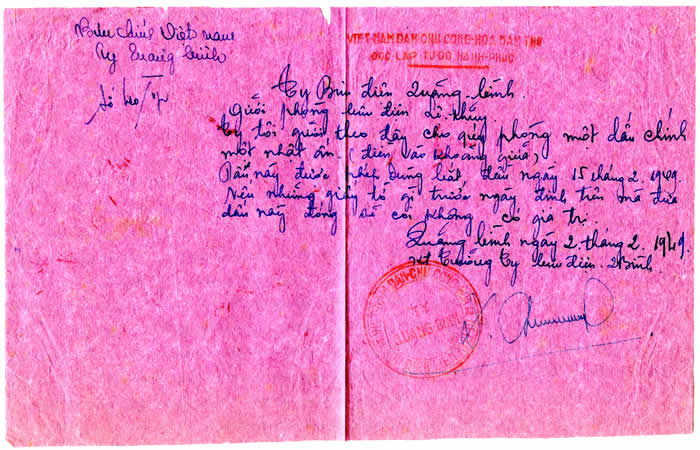 Bưu chính Việt Nam
Ty Quảng Bình
Số
VIỆT-NAM DÂN CHỦ CỘNG-HÒA DÂN THỨ
ĐỘC-LẬP TỰ-DO HẠNH-PHÚC
Ty Bưu điện Quảng bình
gửi phòng bưu điện Lệ thủy.
Ty tôi gửi theo đây cho quý phòng một dấu chính
một nhật ấn. (điền vào khoảng giữa)
Dấu này được phép dùng bắt đầu ngày 15 tháng 2. 1949.
Nếu những giấy tờ gì trước ngày định trên mà đưa
dấu này đóng sẽ coi không có giá trị.
Quảng bình ngày 2. tháng 2. 1949.
Trưởng Ty bưu điện. QBình.
QUẢNG BÌNH